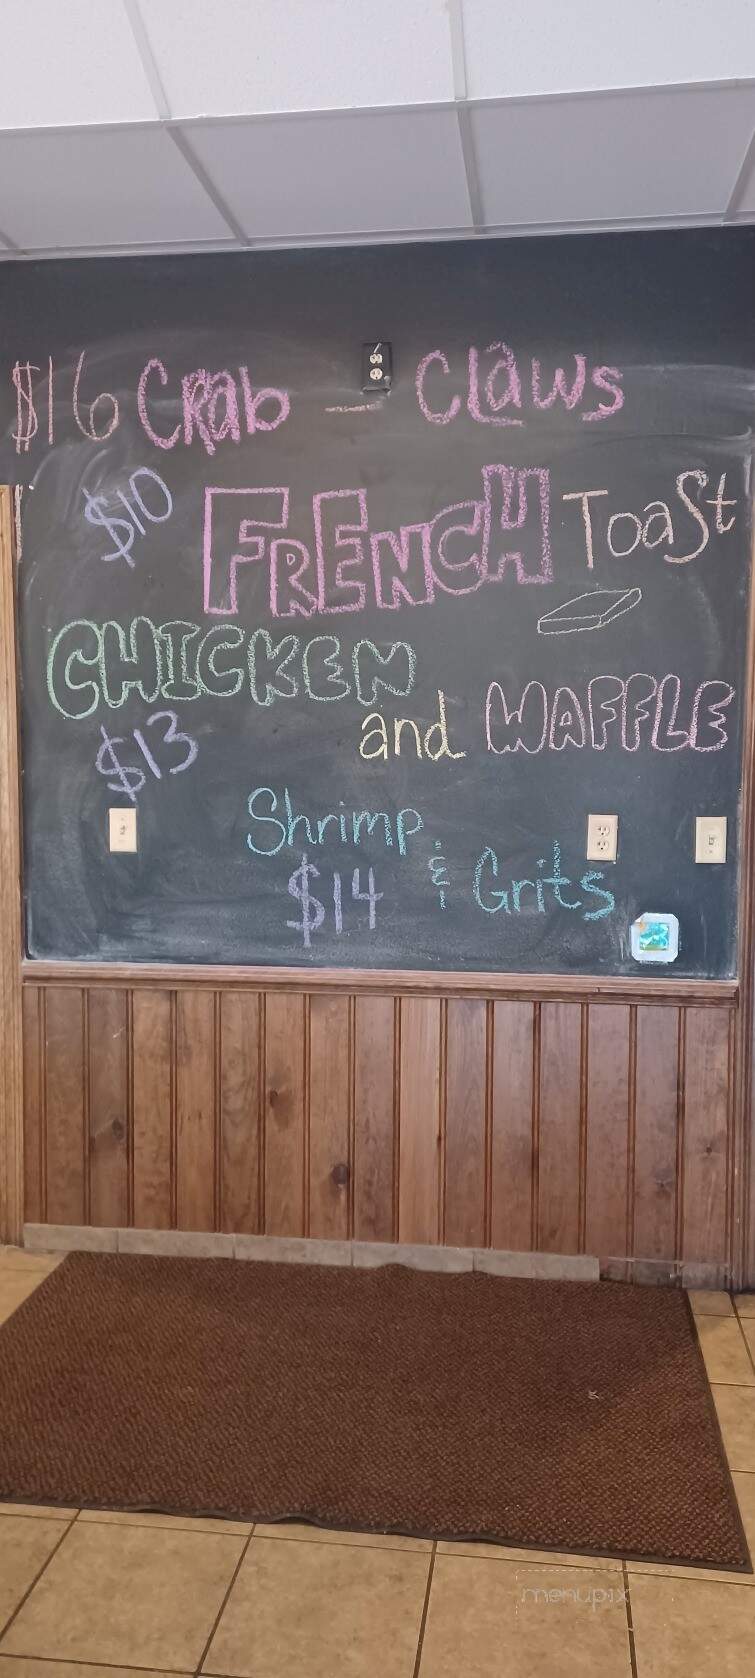 $16 Crab - Claws
$10 FRENCH Toast
CHICKEN
$13 and WAFFLE
Shrimp
$14 & Grits
menupix